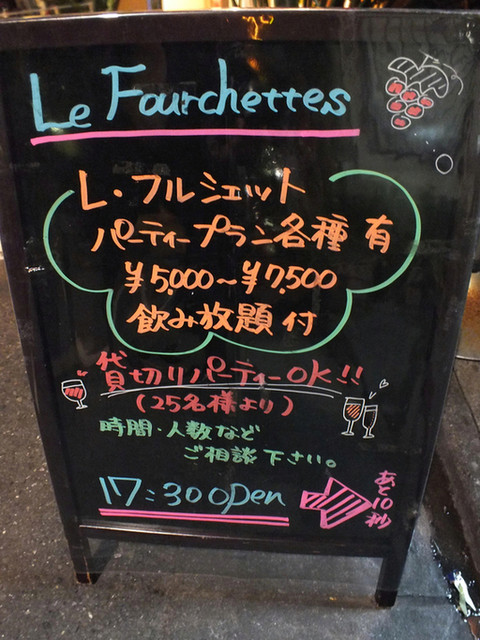 Le Fourchettes
L・フルシェット
パーティープラン各種 有
¥5,000〜¥7,500
飲み放題付
貸切りパーティーOK!!
(25名様より)
時間・人数など
ご相談下さい。
17:30 open
あと10秒